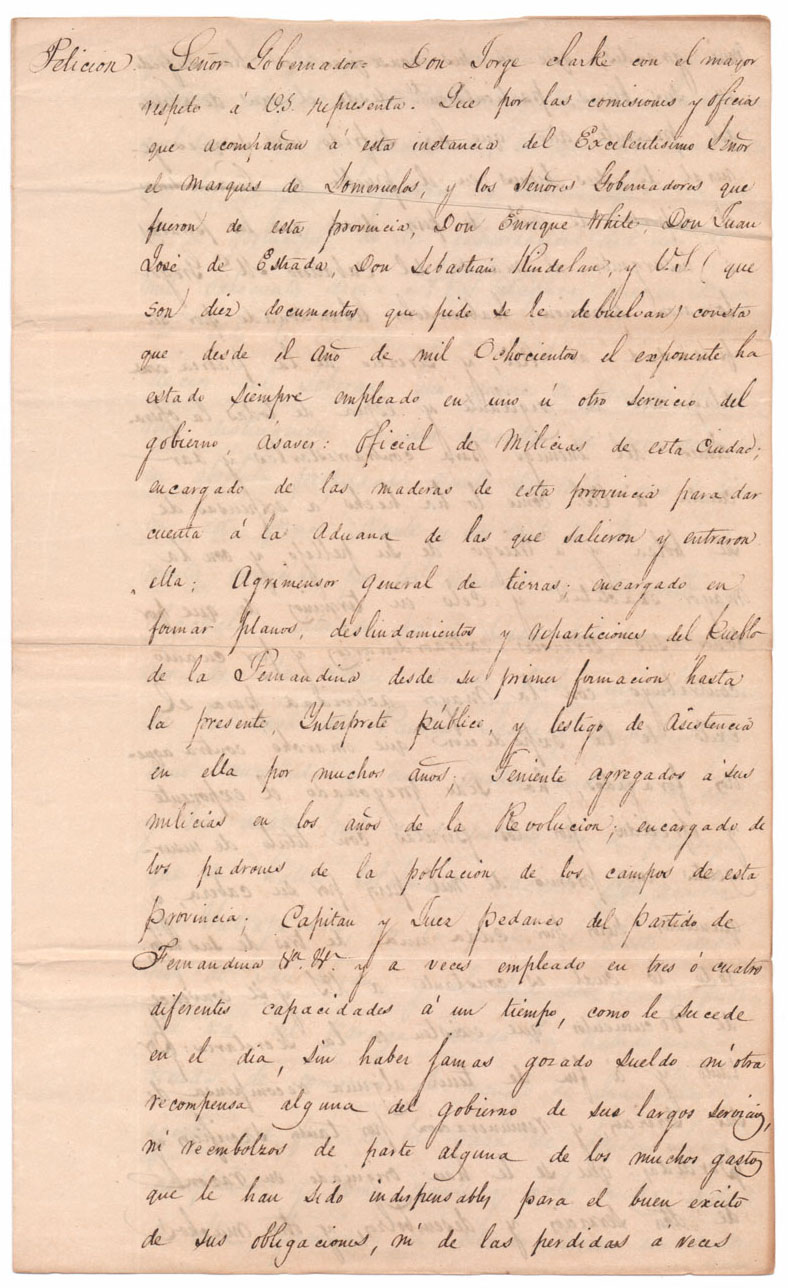 Peticion. Señor Gobernador= Don Jorge clarke con el mayor
respeto á V.S. representa. Que por las comisiones y oficios
que acompañan á esta instancia del Excelentisimo Señor
el Marques de Someruelos, y los Señores Gobernadores que
fueron de esta provincia, Don Enrique White, Don Juan
José de Estrada, Don Sebastian Kindelan, y V.S. (que
son diez documentos que pide se le debuelvan) consta
que desde el año de mil Ochocientos el exponente ha
estado siempre empleado en uno ú otro servicio del
gobierno, ásaver: oficial de Milicias de esta Ciudad;
encargado de las maderas de esta provincia para dar
cuenta á la Aduana de las que salieron y entraron
ella; Agrimensor general de tierras; encargado en
formar planos, deslindamientos y reparticiones del Pueblo
de la Fernandina desde su primer formacion hasta
la presente, Ynterprete público, y testigo de Asistencia
en ella por muchos años; Teniente agregados á sus
milicias en los años de la Revolucion; encargado de
los padrones de la población de los campos de esta
provincia; Capitan y Juez pedaneo del partido de
Fernandina &ª. &ª. y a veces empleado en tres ó cuatro
diferentes capacidades á un tiempo, como le sucede
en el dia, sin haber jamas gozado sueldo ni otra
recompensa alguna del gobierno de sus largos servicios,
ni reembolzos de parte alguna de los muchos gastos
que le han sido indispensables para el buen excito
de sus obligaciones, ni de las perdidas á veces